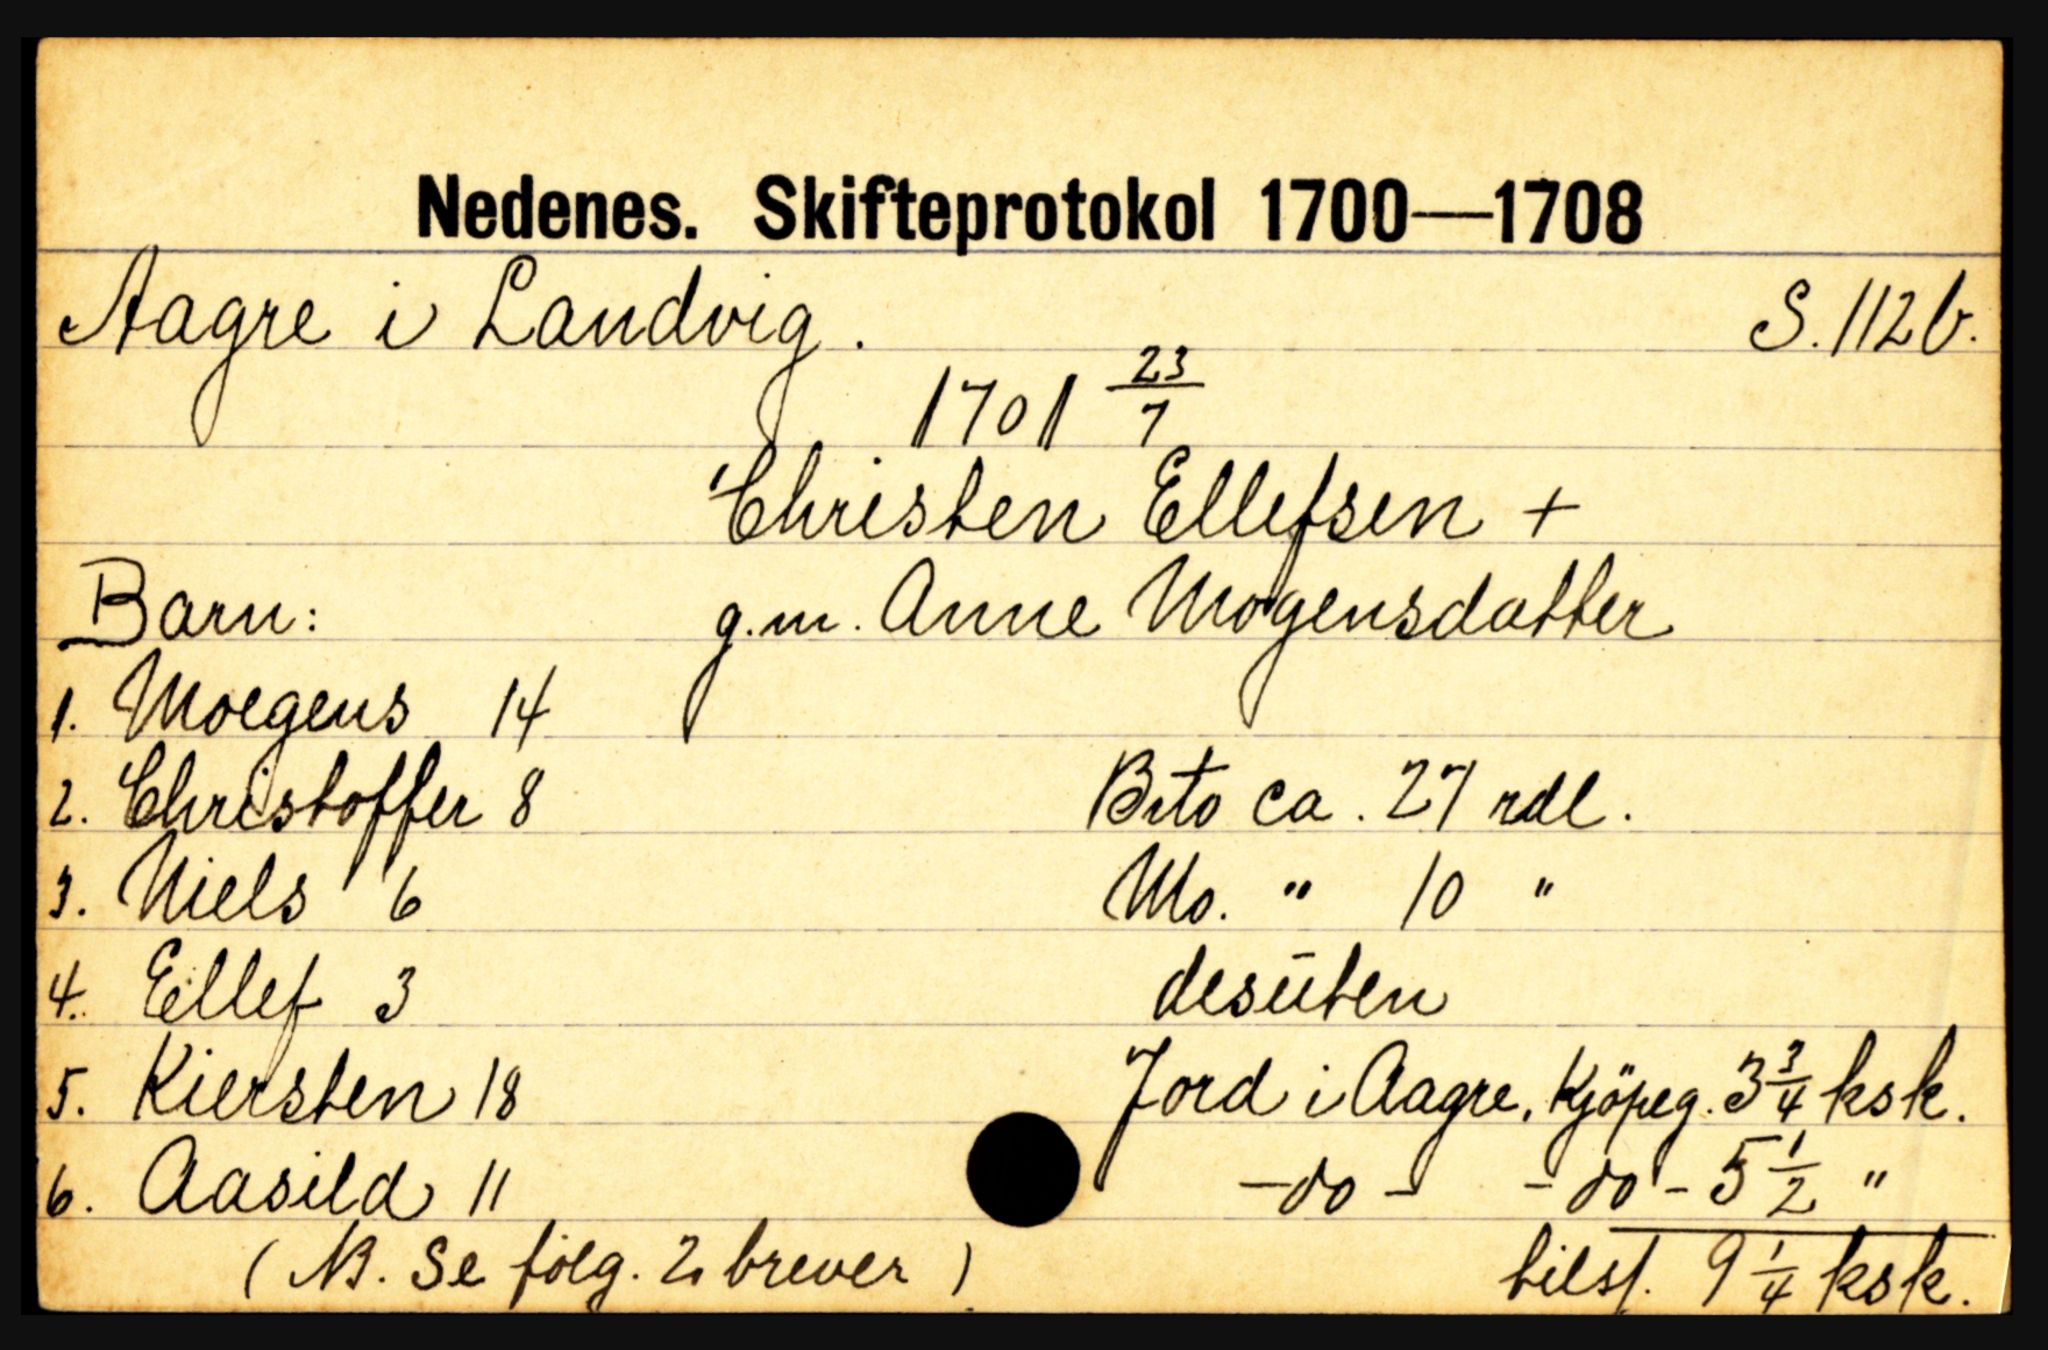 Nedenes. Skifteprotokol 1700—1708
Aagre i Landvig. S. 112 b.
1701 23/7
Christen Ellefsen +
Barn: g.m. Anne Mogensdatter
1. Moegens 14
2. Christoffer 8 Bto ca. 27 rdl.
3. Niels 6 Mo. " 10 "
4. Ellef 3 desūten
5. Kiersten 18 Jord i Aagre, Kjöpeg. 3 3/4 ksk.
6. Aasild 11 -do- -do- 5 1/2 "
(NB. Se fölg. 2 brever) tils/. 9 1/4 ksk.